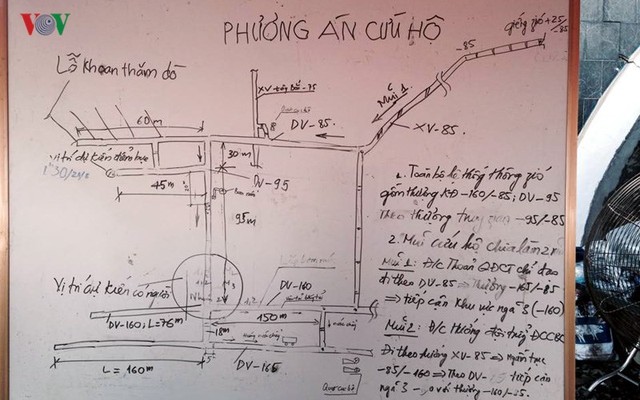 VOV
PHƯƠNG ÁN CỨU HỘ
giếng gió +25/-85
Lỗ khoan thăm dò
-85
60m
XV-85
DV-85
Mũi 1
30m
DV-95
1h30/24/10
45m
95m
Vị trí dự kiến có người
DV-160
DV-160; L=76m
150m
18m
DV-165
L = 160m
1. Toàn bộ hệ thống thông gió
gồm thượng KĐ -160/-85; DV-95
Theo thượng -95/-85
2. Mũi cứu hộ chia làm 2 mũi
Mũi 1: Đ/c Thoan QĐCT chỉ đạo
đi theo DV-85 ⇒ Thượng -165/-85
⇒ tiếp cận khu vực ngã 3 (-160)
Mũi 2: Đ/c Hương đội trưởng
Đi theo đường XV-85 ⇒
-85/-160 ⇒ Theo DV- tiếp cận
ngã 3 với thượng -160/-85.